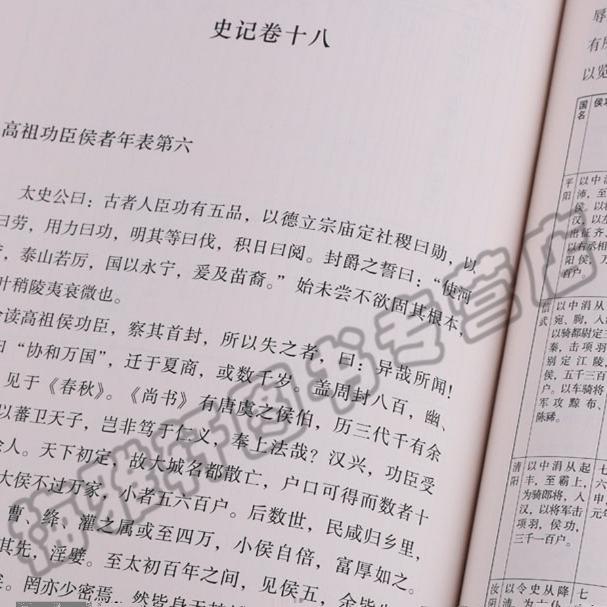 史记卷十八
高祖功臣侯者年表第六
太史公曰：古者人臣功有五品，以德立宗庙定社稷曰勋，以
曰劳，用力曰功，明其等曰伐，积日曰阅。封爵之誓曰：“使河
，泰山若厉，国以永宁，爰及苗裔。”始未尝不欲固其根本，
叶稍陵夷衰微也。
余读高祖侯功臣，察其首封，所以失之者，曰：异哉所闻！
曰“协和万国”，迁于夏商，或数千岁。盖周封八百，幽、
见于《春秋》。《尚书》有唐虞之侯伯，历三代千有余
以蕃卫天子，岂非笃于仁义，奉上法哉？汉兴，功臣受
余人。天下初定，故大城名都散亡，户口可得而数者十
大侯不过万家，小者五六百户。后数世，民咸归乡里，
曹、绛、灌之属或至四万，小侯自倍，富厚如之。
其先，淫嬖。至太初百年之间，见侯五，余皆
罔亦少密焉，然皆身无
辱
有
以览
国名
侯
平阳
以中
沛，至
侯。以
入汉，以
出征齐、
以右丞相
阳侯，万
百户。
信武
以中涓从
宛、朐，入
以骑都尉定
秦，击项羽
别定江陵，
侯，五千三
户。以车骑将
军攻黥布、
陈豨。
清阳
以中涓从起
丰，至霸上，
为骑郎将，入
汉，以将军击
项羽，侯功，
三千一百户。
七
六
申
元年
汝阴
以令史从降
沛，为太仆
七
六